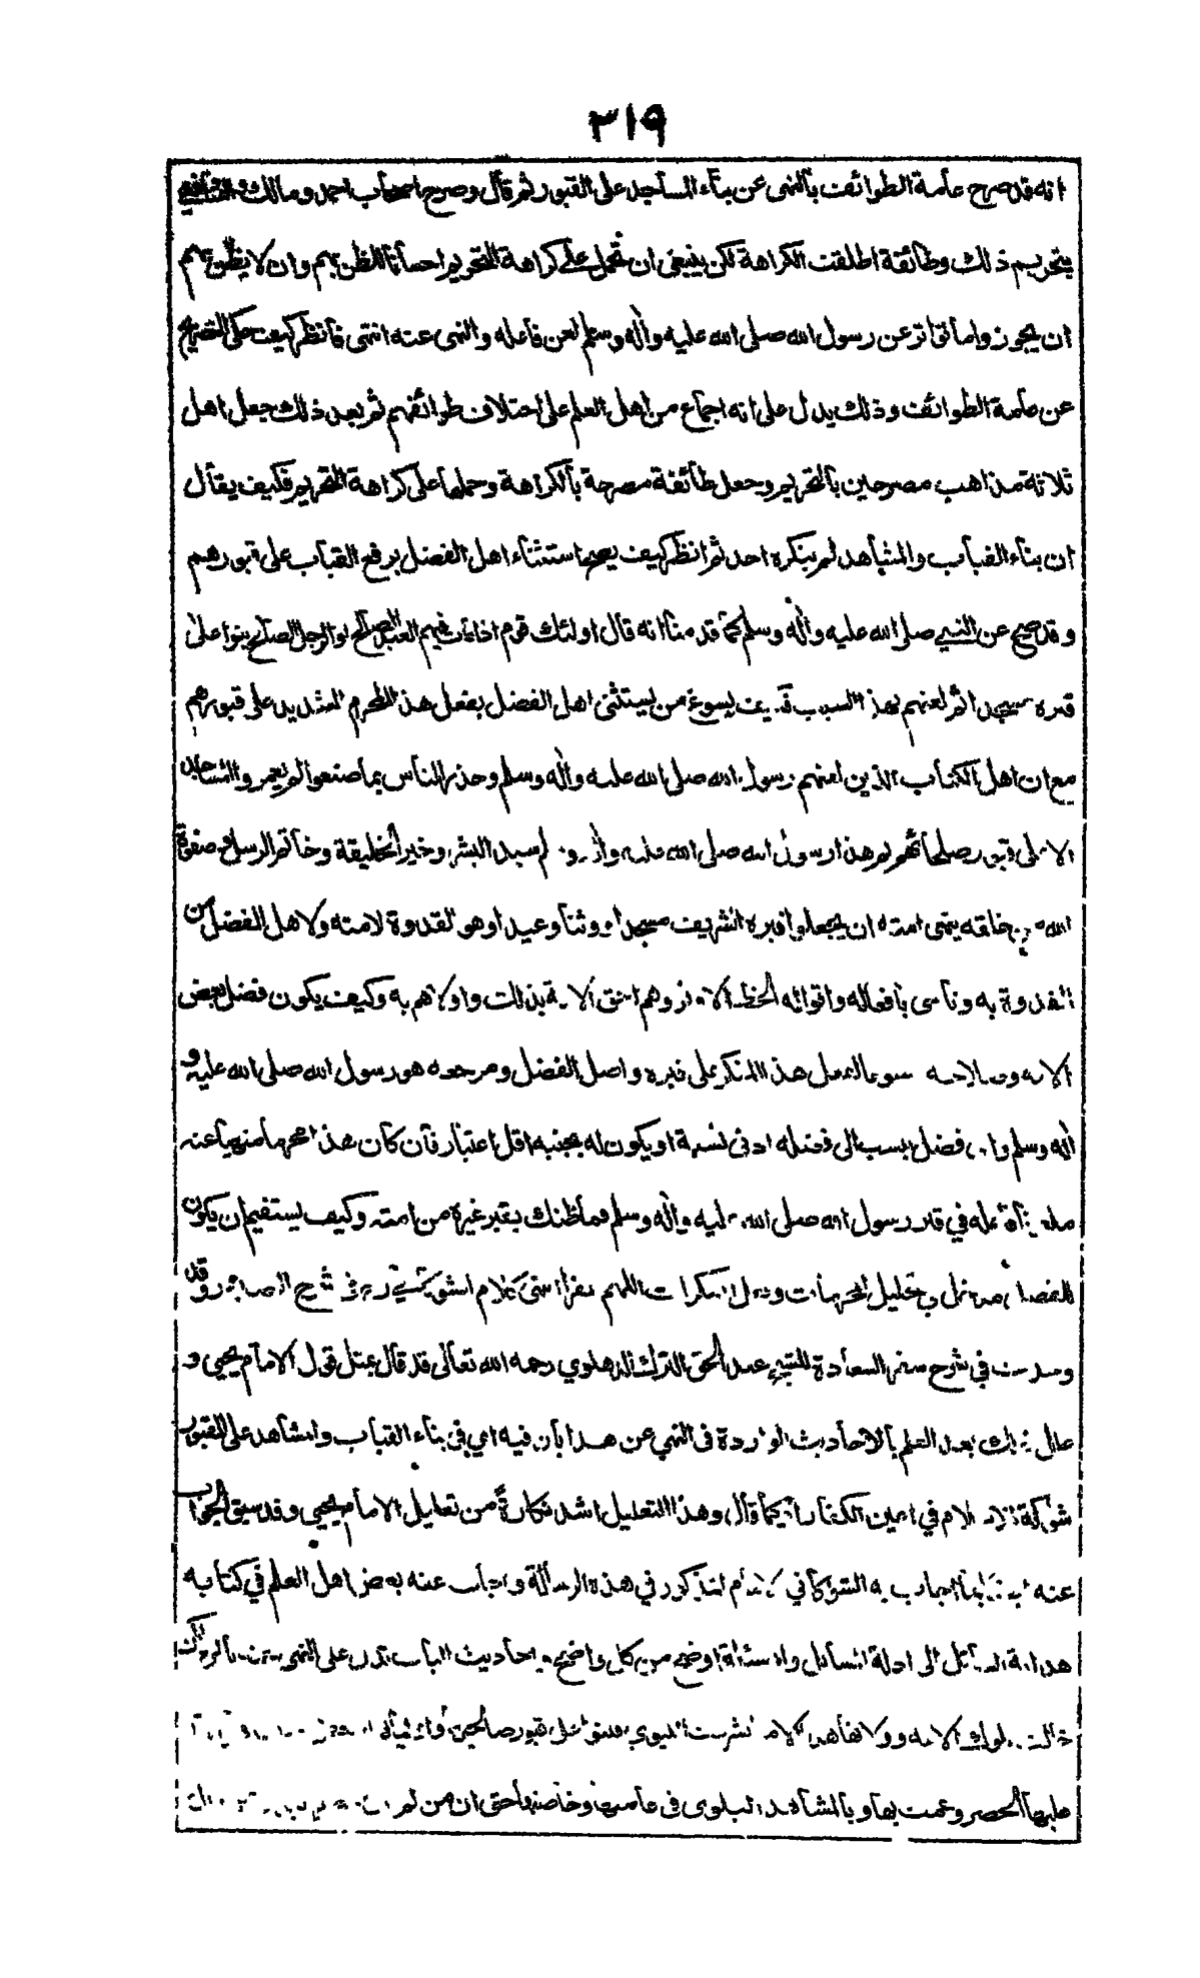 ٣١٩
انه قد صرح عامة الطوائف بالنهى عن بناء المساجد على القبور ثم قال وصرح اصحاب احمد ومالك والشافعي
بتحريم ذلك وطائفة اطلقت الكراهة لكن ينبغى ان تحمل على كراهة التحريم احسانا للظن بهم وان لا يظن بهم
ان يجوزوا ما تواتر عن رسول الله صلى الله عليه واله وسلم لعن فاعله والنهى عنه انتهى فانظر كيف حكى التصريح
عن عامة الطوائف وذلك يدل على انه اجماع من اهل العلم على اختلاف طوائفهم ثم بعد ذلك جعل اهل
ثلاثة مذاهب مصرحين بالتحريم وجعل طائفة مصرحة بالكراهة وحملها على كراهة التحريم فكيف يقال
ان بناء القباب والمشاهد لم ينكره احد ثم انظر كيف يصح استثناء اهل الفضل برفع القباب على قبورهم
وقد صح عن النبي صلى الله عليه واله وسلم كما قدمنا انه قال اولئك قوم اذا مات فيهم العبد الصالح او الرجل الصالح بنوا على
قبره مسجدا ثم لعنهم بهذا السبب فكيف يسوغ من يستثنى اهل الفضل بفعل هذا المحرم الشديد على قبورهم
مع ان اهل الكتاب الذين لعنهم رسول الله صلى الله عليه واله وسلم وحذر الناس بما صنعوا لم يعمروا المساجد
الا على قبور صلحائهم ثم هذا رسول الله صلى الله عليه واله وسلم سيد البشر وخير الخليقة وخاتم الرسل وصفوة
الله من خلقه ينهى امته ان يجعلوا قبره الشريف مسجدا او وثنا او عيدا وهو القدوة لامته ولاهل الفضل من
القدوة به والتأسى بافعاله واقواله الحظ الاوفر وهم احق الامة بذلك واولاهم به وكيف يكون فضل بعض
الامة وصلاحه مسوغا لفعل هذا المنكر على قبره واصل الفضل ومرجعه هو رسول الله صلى الله عليه و
اله وسلم واى فضل ينسب الى فضله ادنى نسبة او يكون له بجنبه اقل اعتبار فان كان هذا محرما منهيا عنه
ملعونا فاعله في قبر رسول الله صلى الله عليه واله وسلم فما ظنك بقبر غيره من امته وكيف يستقيم ان يكون
للفضل مدخل في تحليل المحرمات وفعل المنكرات اللهم غفرا انتهى كلام الشوكاني رح في شرح الصدور وقد
وجدت في شرح سفر السعادة للشيخ عبد الحق الترك الدهلوي رحمه الله تعالى قد قال بمثل قول الامام يحيى و
علل ذلك بعد العلم بالاحاديث الواردة فى النهي عن هذا بان فيه اي فى بناء القباب والمشاهد على القبور
شوكة للاسلام في اعين الكفار كما قال وهذا التعليل اشد نكارة من تعليل الامام يحيى وقد سبق الجواب
عنه بما اجاب به الشوكاني في كلام المذكور في هذه الرسالة واجاب عنه بعض اهل العلم في كتابه
هداية السائل الى ادلة المسائل والمسئلة اوضح من كل واضح واحاديث الباب تدل على النهى
الامة وولاتها هذا الامر
عليها الحصر وعمت بها وبالمشاهد البلوى فى عامتها وخاصتها حتى ان من لم